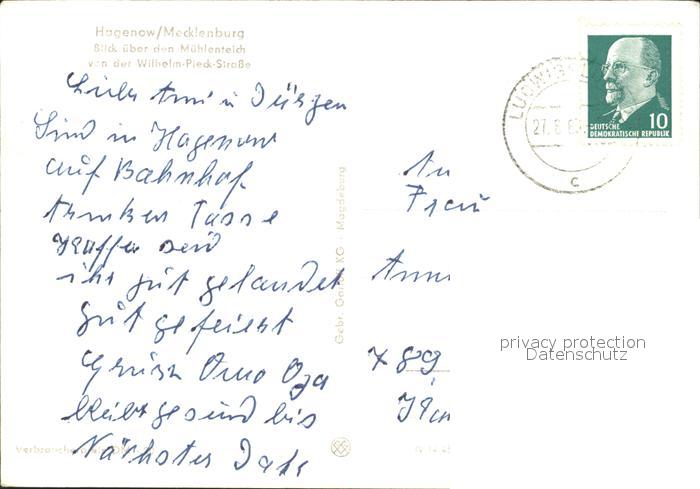 Hagenow/Mecklenburg
Blick über den Mühlenteich
von der Wilhelm-Pieck-Straße
Liebe Anni u Jürgen
Sind in Hagenow
auf Bahnhof
trinken Tasse
Kaffee seid
ihr gut gelandet
gut gefeiert
Grüße Omo Opa
bleibt gesund bis
Nächstes Jahr
Gebr. KG Magdeburg
LUDWIGS
27. 8 6
c
DEUTSCHE
DEMOKRATISCHE REPUBLIK
10
An
Frau
Anni
privacy protection
Datenschutz